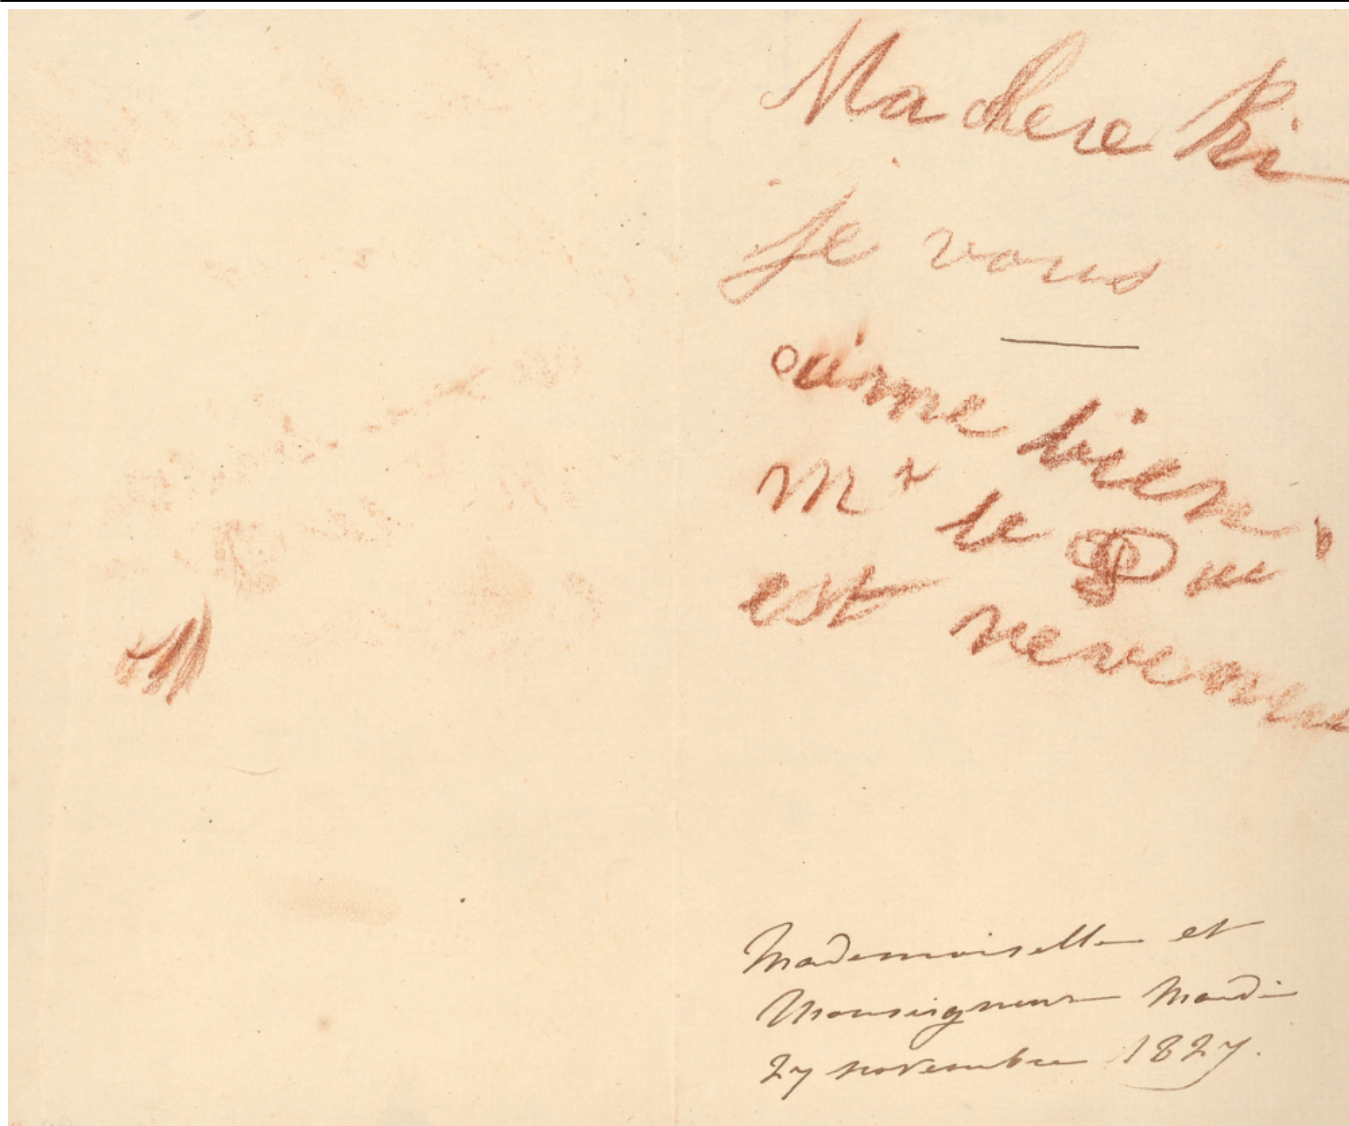 Ma chere Bi
je vous
aime bien
Mr le Du
est revenu
Mademoiselle et
Monseigneur Mardi
27 novembre 1827.